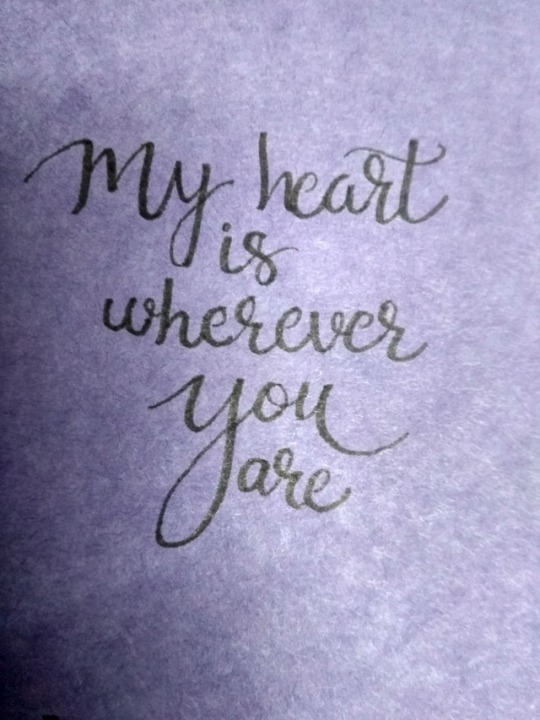 My heart
is
wherever
you
are